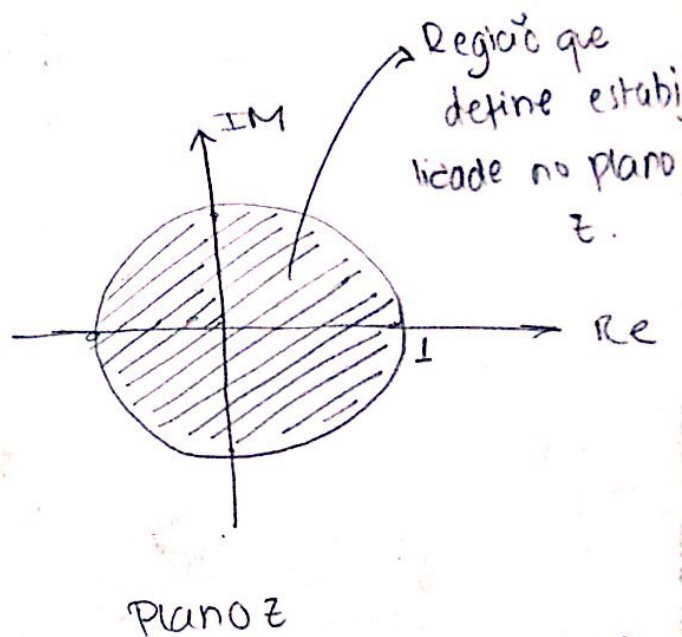 Região que
define estabi
lidade no plano
z.
IM
Re
1
Plano z